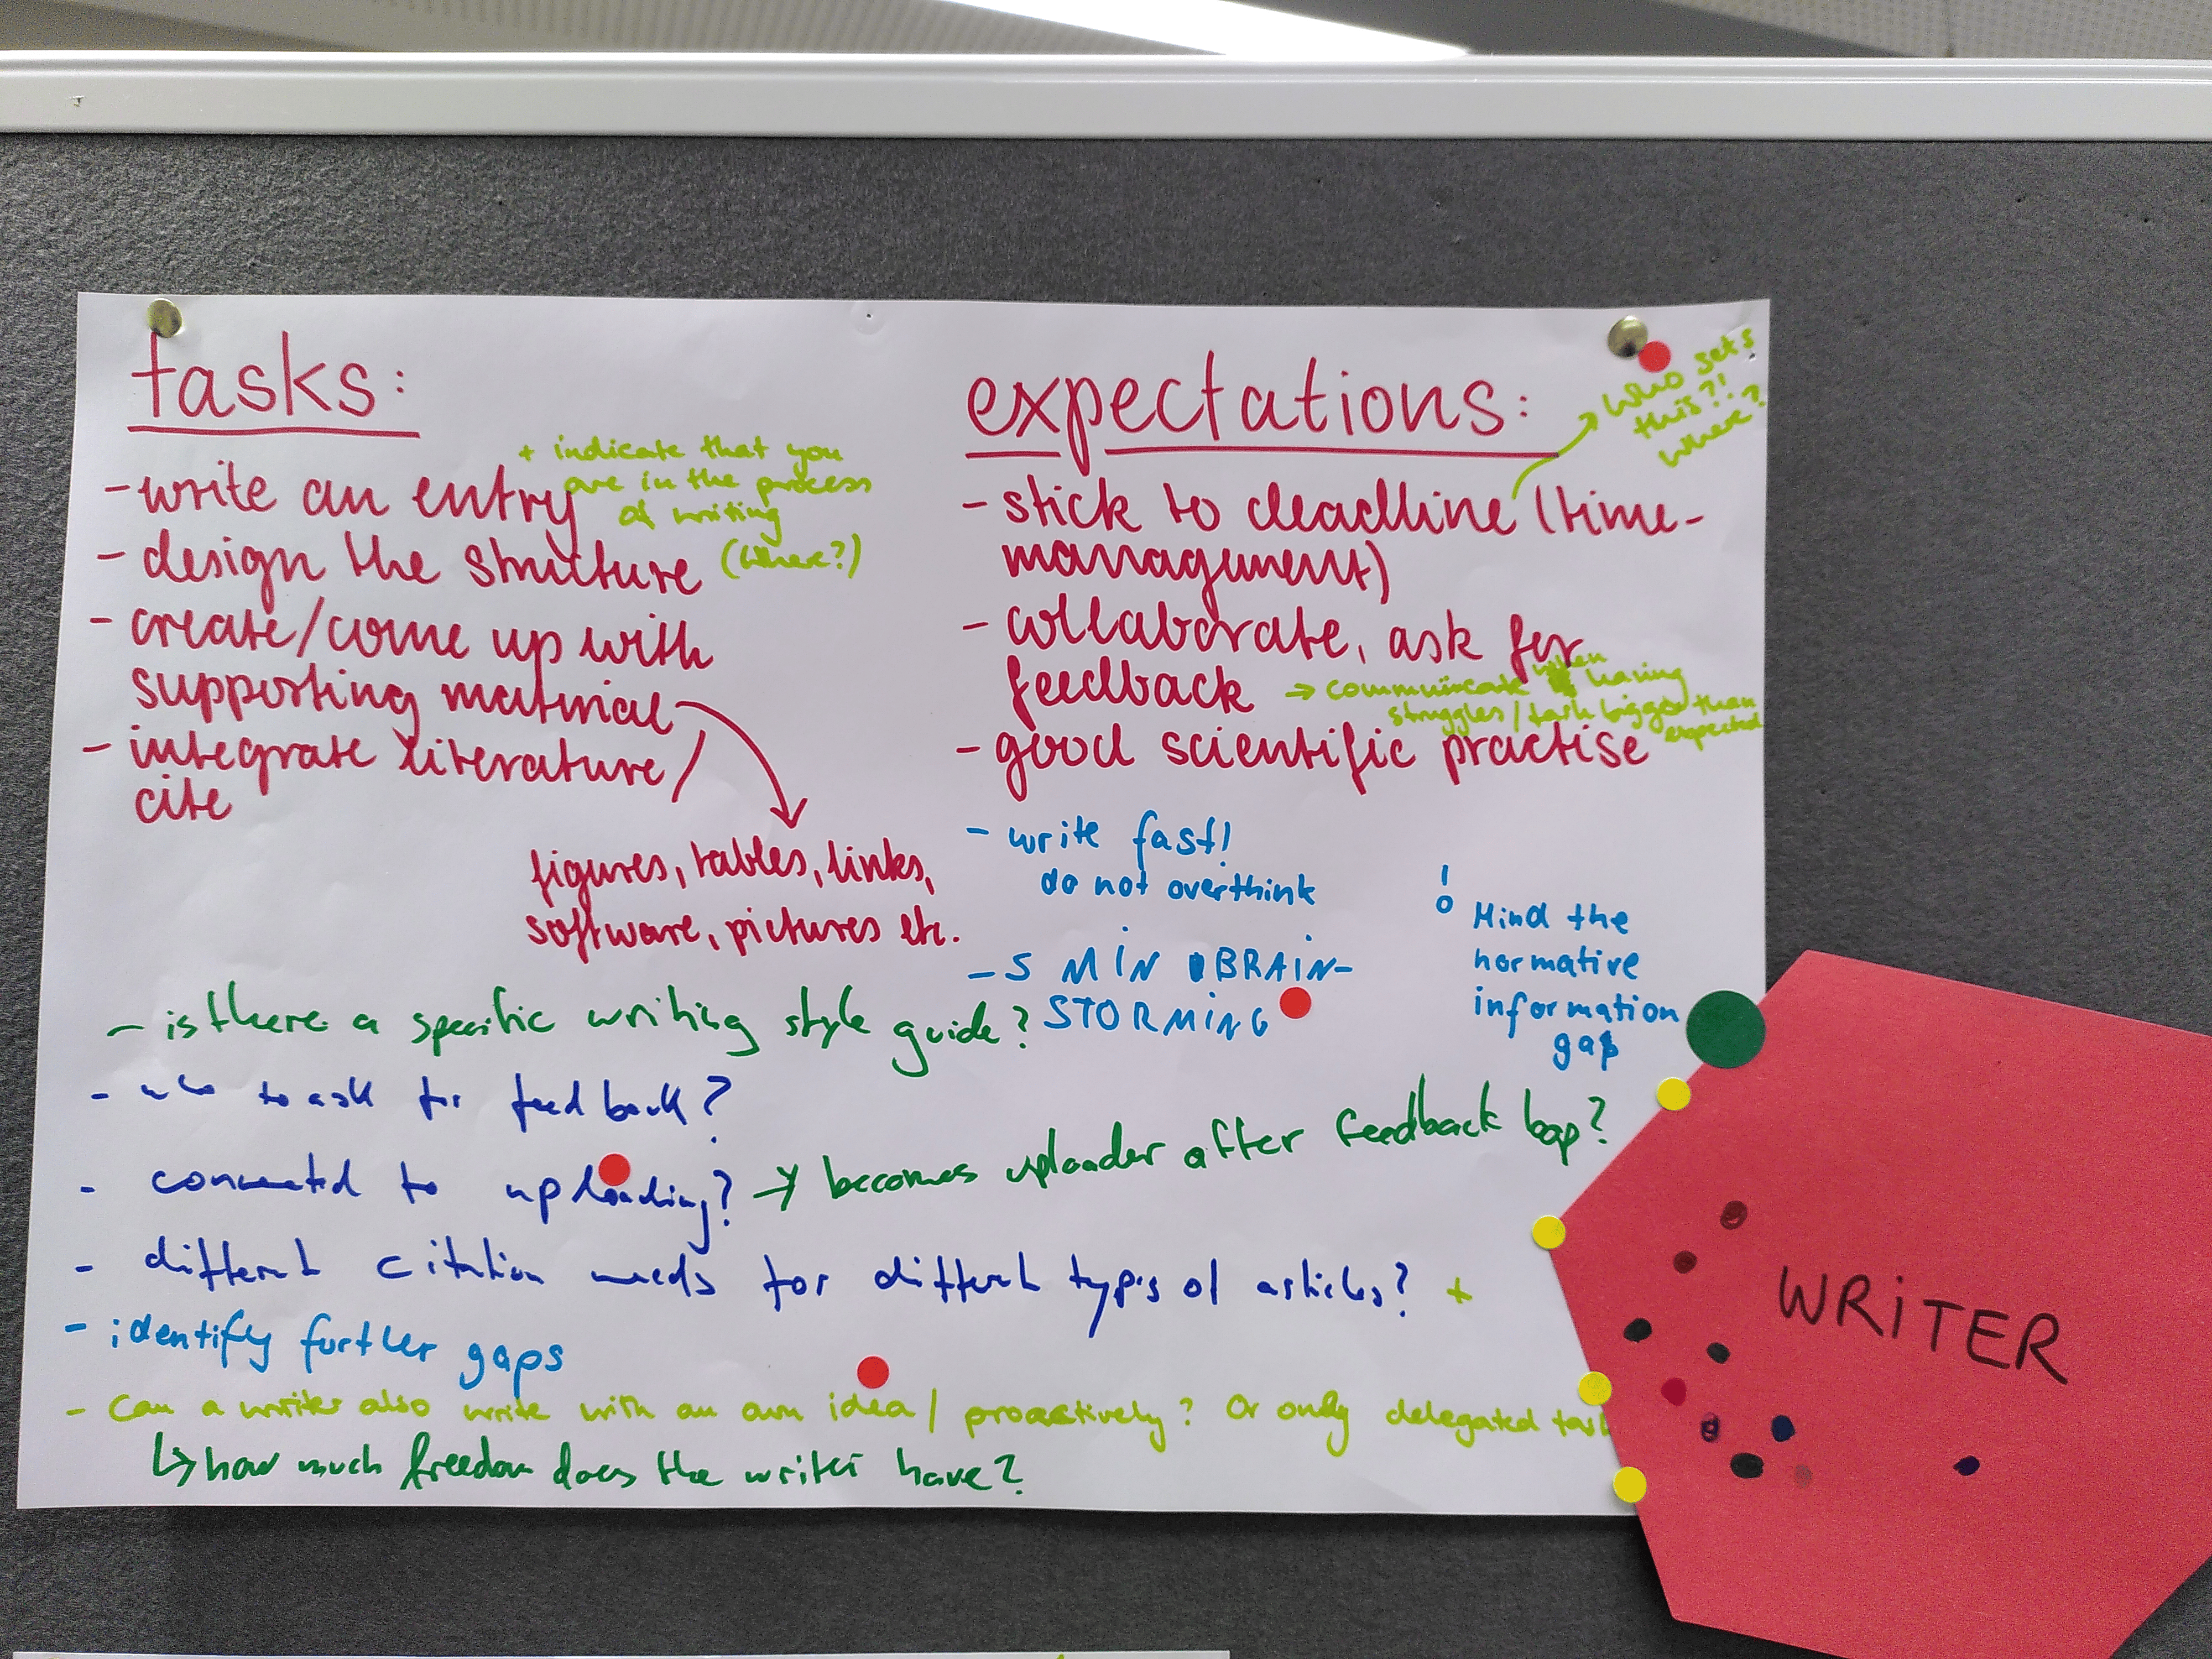 tasks:
- write an entry
+ indicate that you
are in the process
of writing
(where?)
- design the structure
- create/come up with
supporting material
- integrate literature/
cite
figures, tables, links,
software, pictures etc.
expectations:
who sets
this?!
where?
- stick to deadline (time-
management)
- collaborate, ask for
feedback
→ communicate when having
struggles/task bigger than
expected
- good scientific practise
- write fast!
do not overthink
- 5 MiN BRAiN-
STORMiNG
! Mind the
normative
information
gap
- is there a specific writing style guide?
- who to ask for feedback?
- connected to uploading? → becomes uploader after feedback loop?
- different citation needs for different types of articles? +
- identify further gaps
- Can a writer also write with an own idea / proactively? Or only delegated
↳ how much freedom does the writer have?
WRiTER